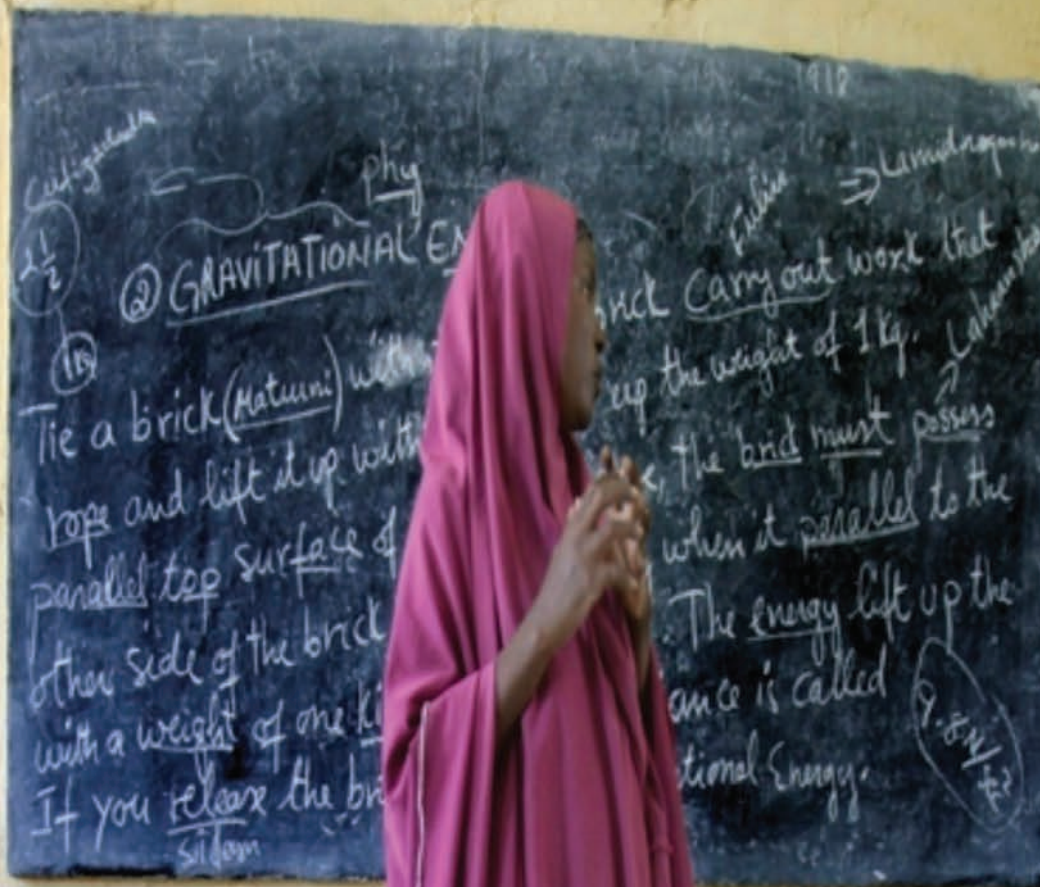 1918
phy
2 1/2
② GRAVITATIONAL EN
1kg
Tie a brick (Matuuni) with
rope and lift it up with
parallel top surface of
other side of the brick
with a weight of one ki
If you release the bri
rick Carry out work that
up the weight of 1kg.
, The brick must possess
when it parallel to the
. The energy lift up the
ance is called
tional Energy.